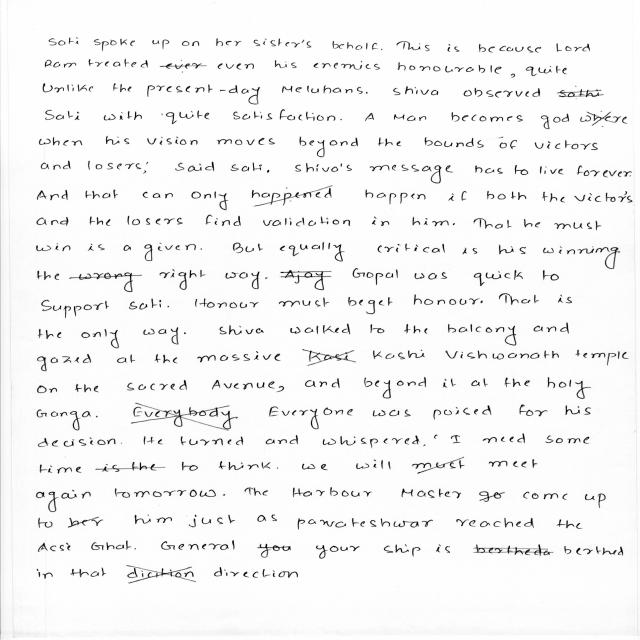 Sati spoke up on her sister's behalf. This is because Lord
Ram treated ever even his enemies honourable, quite
Unlike the present-day Meluhans. Shiva observed sathi
Sati with quite satisfaction. A Man becomes god where
when his vision moves beyond the bounds of victors
and losers,' said sati. Shiva's message has to live forever.
And that can only happened happen if both the victor's
and the losers find validation in him. That he must
win is a given. But equally critical is his winning
the wrong right way. Ajay Gopal was quick to
Support sati. Honour must beget honour. That is
the only way. Shiva walked to the balcony and
gazed at the massive Kasi Kashi Vishwanath temple
on the sacred Avenue, and beyond it at the holy
Ganga. Everybody Everyone was poised for his
decision. He turned and whispered,' I need some
time is the to think. we will must meet
again tomorrow. The Harbour Master go come up
to her him just as parvateshwar reached the
Assi Ghat. General you your ship is bertheda berthed
in that dicition direction